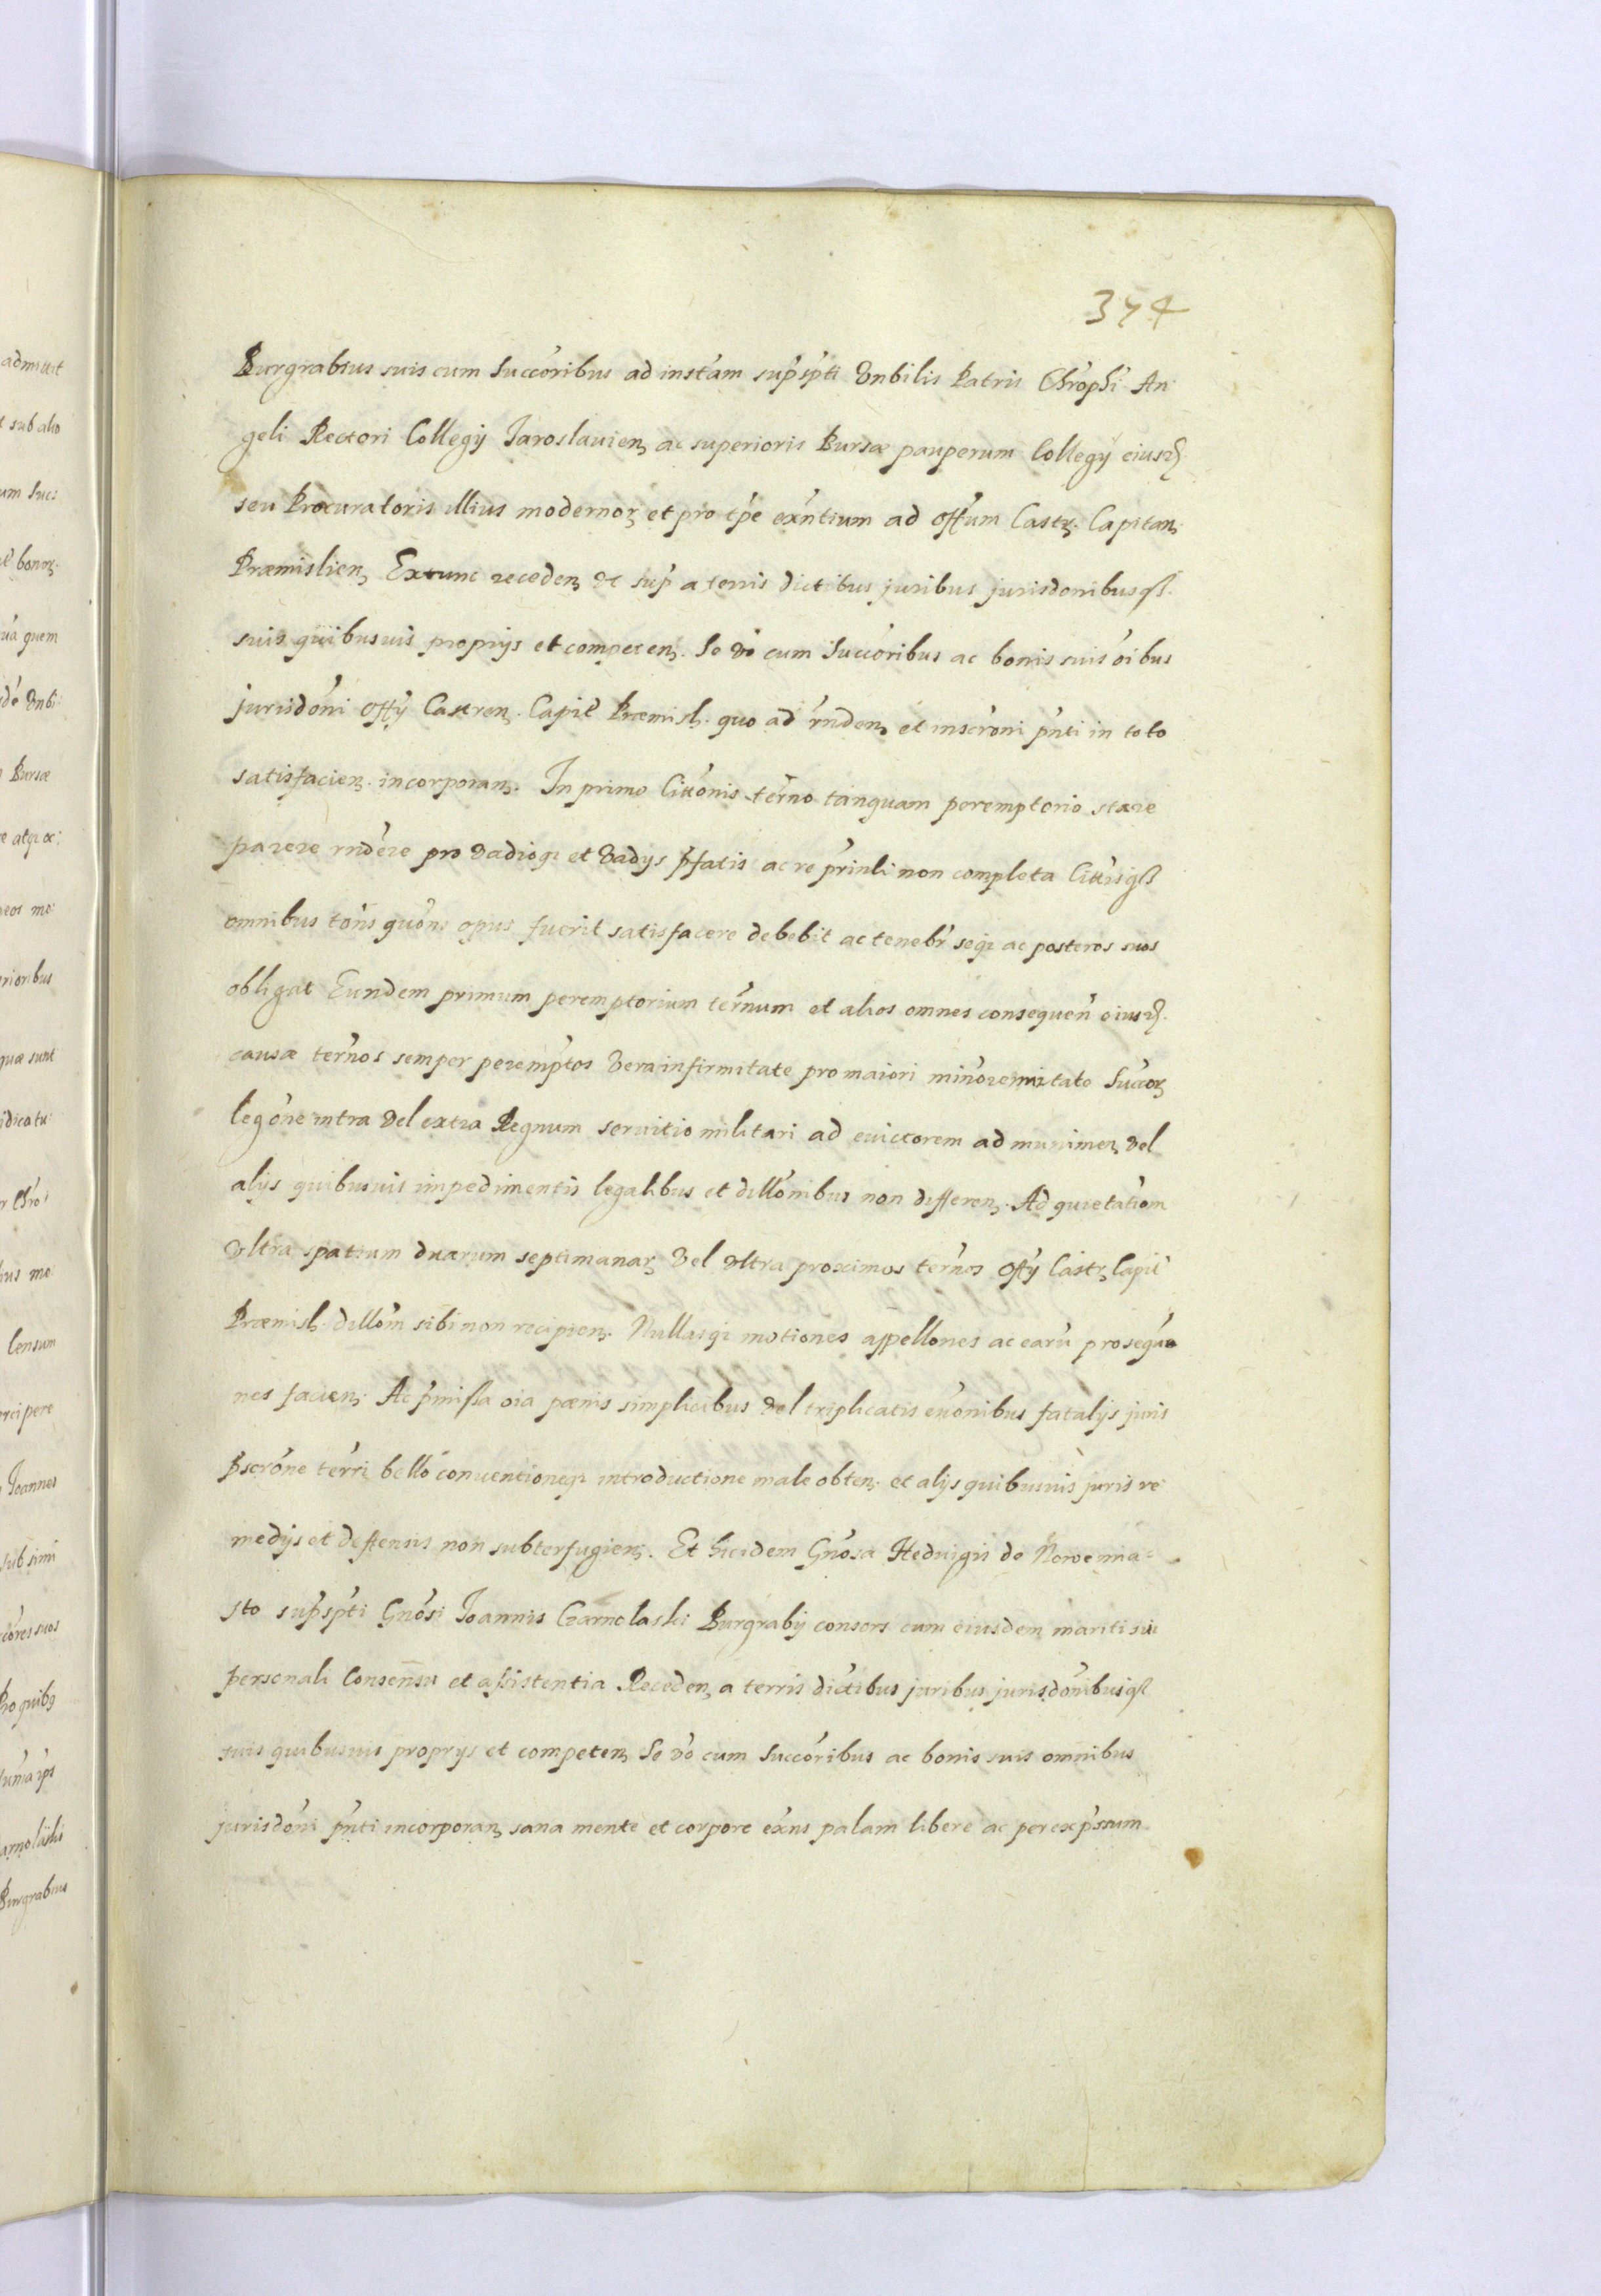 374
Burgrabius suis cum Succoribus ad instam supspti Vnbilis Patris Chrophi An
geli Rectori Collegij Jaroslauien ac superioris Bursæ pauperum Collegij eiusd.
seu Procuratoris illius modernor et pro tpe exntium ad offum Castr. Capitan.
Præmislien, Extunc receden et sup a terris dictibus juribus jurisdonibusqß.
suis quibusuis proprijs et competen. Se vo cum Succoribus ac bonis suis oibus
jurisdoni offij Castren. Capit Præmisl. quo ad rnden et inscroni pnti in toto
satisfacien. incorporan. In primo Cittonis terno tanquam peremptorio stare
parere rndere pro Vadiogz et Vadijs pfatis ac re prinli non completa Cittisqß
omnibus tons quons opus fuerit satisfacere debebit ac tenebr seqz ac posteros suos
obligat Eundem primum peremptorium ternum et alios omnes consequen eiusd.
causæ ternos semper peremptos Vera infirmitate pro maiori minoremitate Succor
legone intra Vel extra Regnum seruitio militari ad euictorem ad munimen Vel
alijs quibusuis impedimentis legalibus et dillonibus non differen. Ad quietatiom
Vltra spatium duarum septimanar, Vel Vltra proximos ternos offij Castr, Capit
Præmisl. dillom sibi non recipien. Nullasqz motiones appellones ac earu prosequo
nes facien. Ac pmißa oia pænis simplicibus Vel triplicatis euonibus fatalijs juris
pscrone terri bello conuentioneqz introductione male obten. et alijs quibusuis juris re
medijs et deffensis non subterfugien. Et hicidem Gnosa Hedvigis de Nowemia
sto supspti Gnosi Joannis Czarnolaski Burgrabij consors cum eiusdem mariti sui
personali Consensu et aßistentia Receden, a terris dictibus juribus jurisdonibusqß
suis quibusuis proprijs et competen, Se vo cum Succoribus ac bonis suis omnibus
jurisdoni pnti incorporan, sana mente et corpore exns palam libere ac per expssum